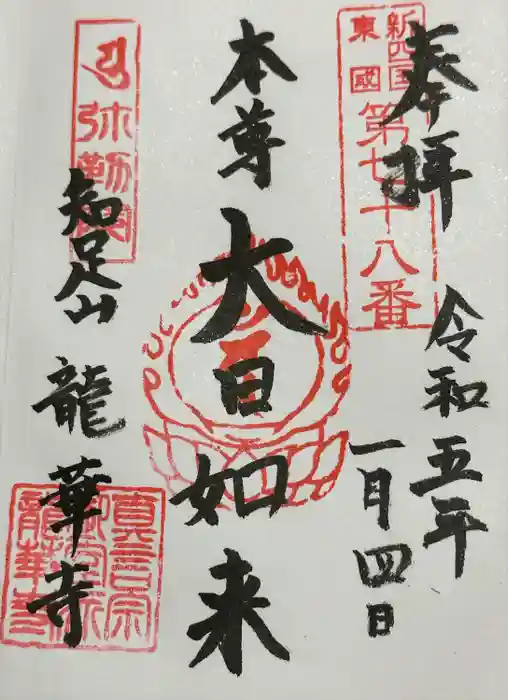 奉拝
令和五年
一月四日
新四国
東國
第七十八番
本尊
大日如来
弥勒
知足山
龍華寺
真言宗
龍華寺